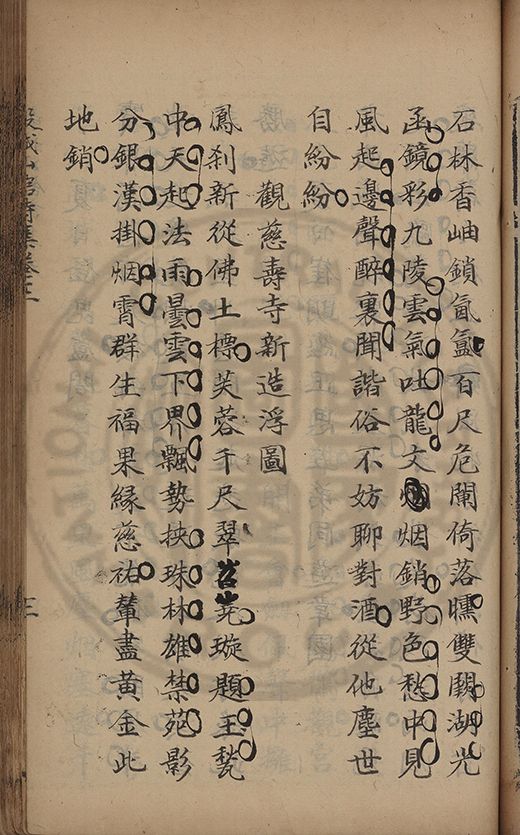 石林香岫鎖氤氳百尺危闌倚落曛雙闕湖光
函鏡彩九陵雲氣吐龍文烟銷野色愁中見
風起邊聲醉裏聞諧俗不妨聊對酒從他塵世
自紛紛
觀慈壽寺新造浮圖
鳳刹新從佛土標芙蓉千尺翠岧嶤璇題玉甃
中天起法雨曇雲下界飄勢挾珠林雄禁苑影
分銀漢掛烟霄群生福果緣慈祐輦盡黃金此
地銷
三